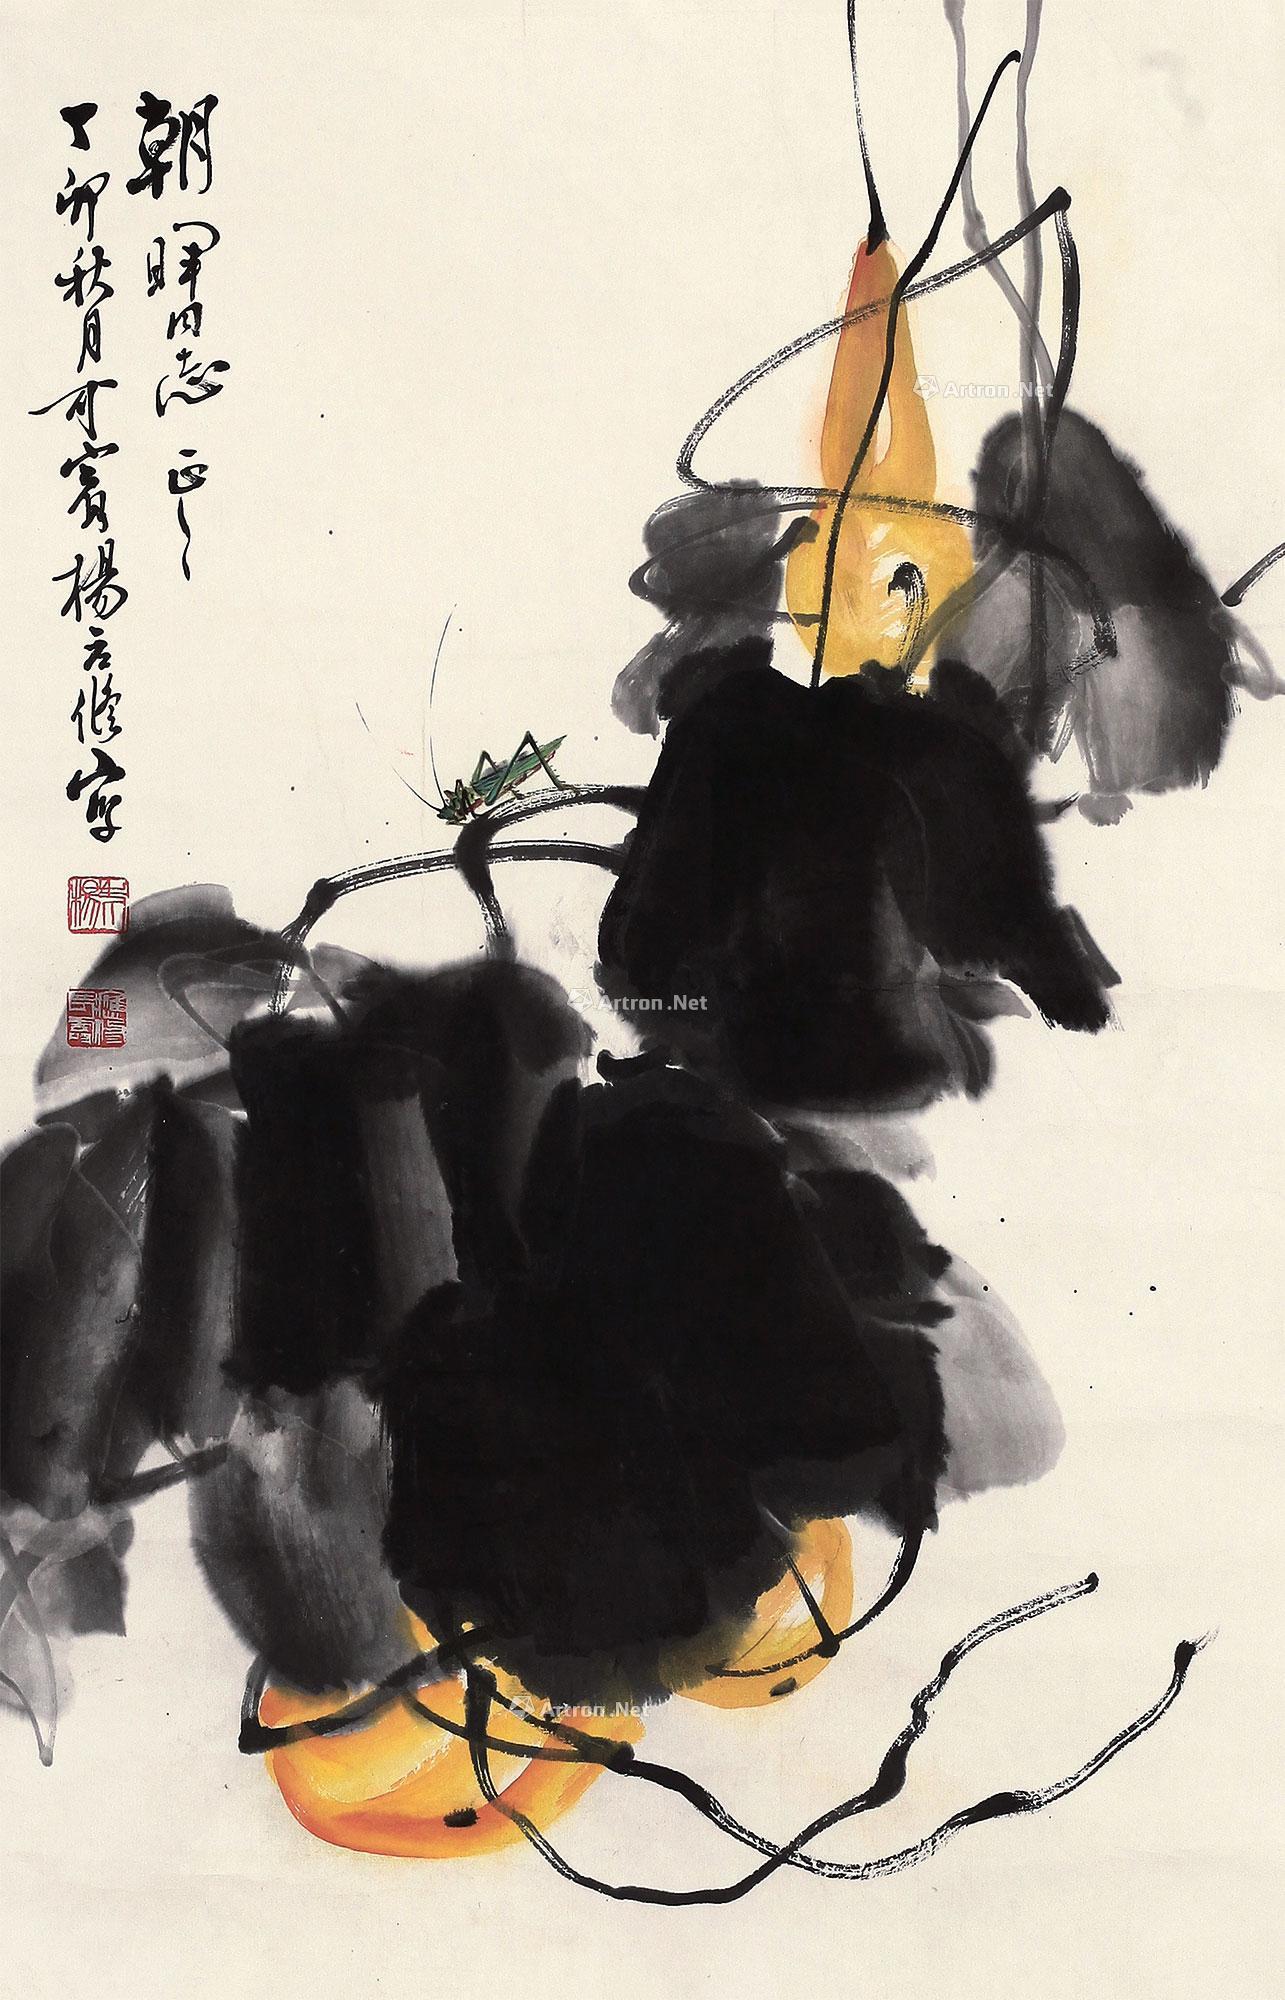 朝暉同志正之
丁卯秋月可賓楊彥修寫
Artron.Net
Artron.Net
Artron.Net